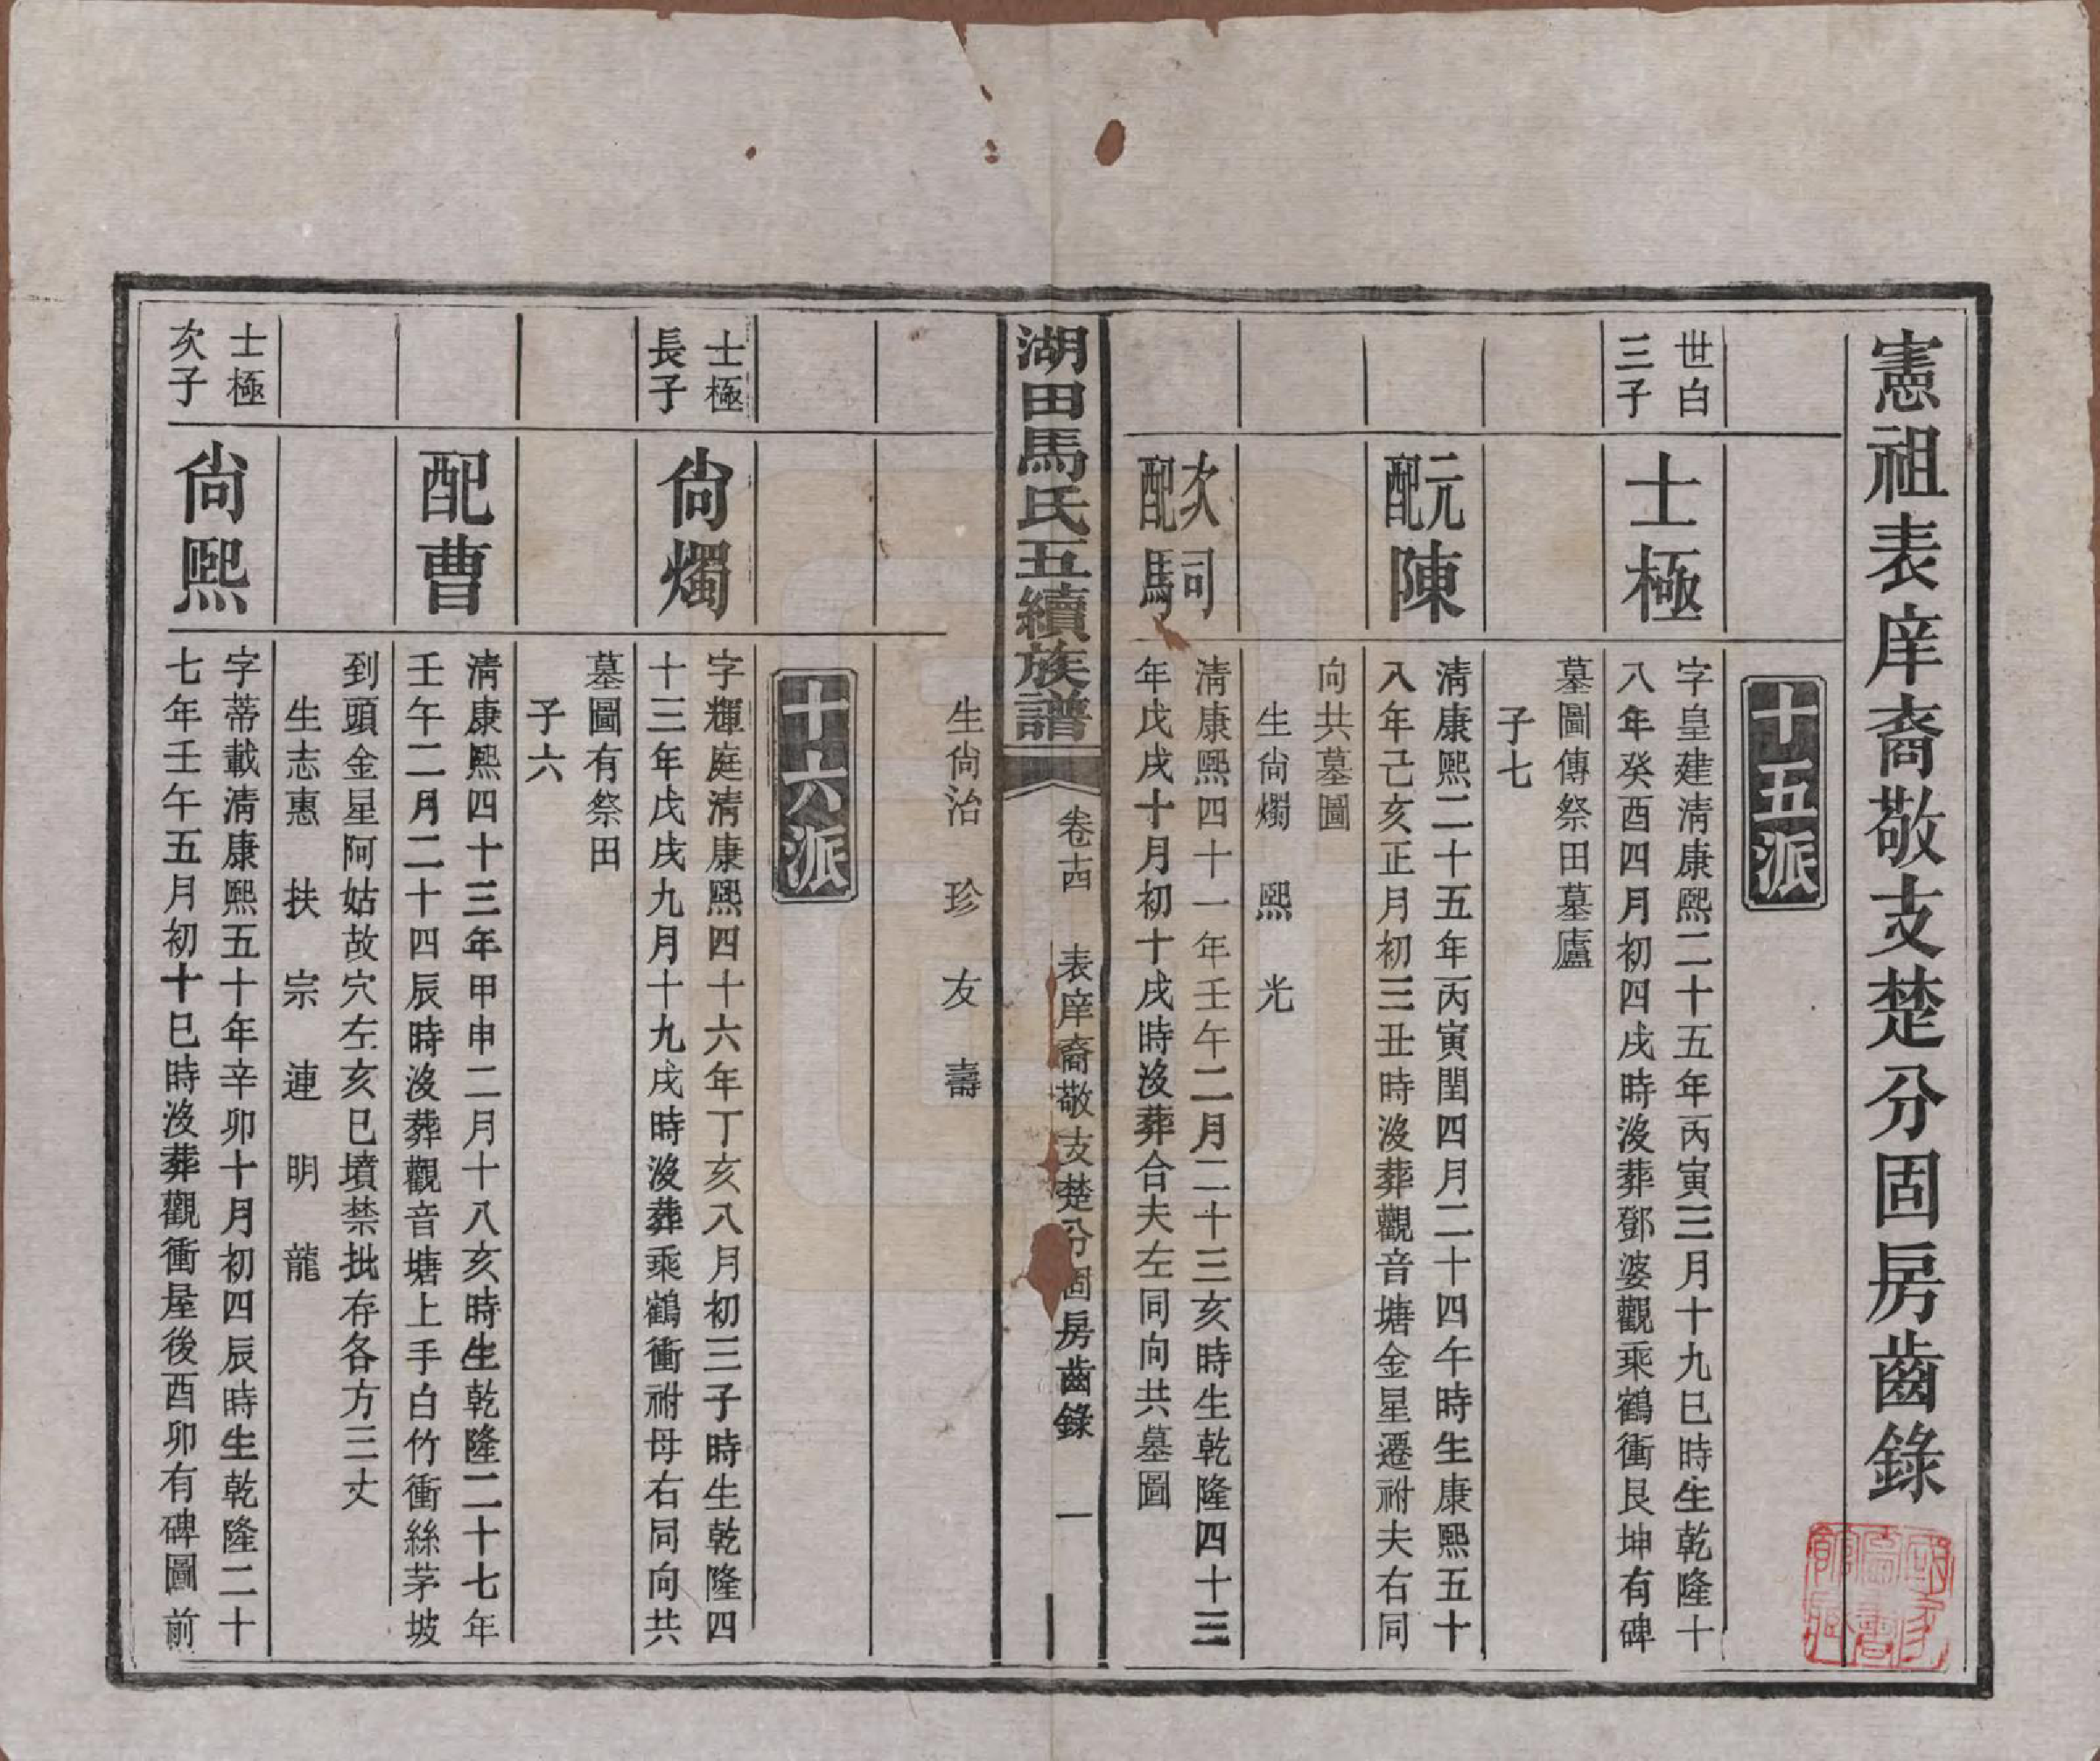 憲祖表庠裔敬支楚分固房齒錄
十五派
世白
三子
士極
字皇建淸康熙二十五年丙寅三月十九巳時生乾隆十
八年癸酉四月初四戌時没葬鄧婆觀乘鶴衝艮坤有碑
墓圖傳祭田墓廬
子七
元配
陳
淸康熙二十五年丙寅閏四月二十四午時生康熙五十
八年己亥正月初三丑時没葬觀音塘金星遷祔夫右同
向共墓圖
生尙燭 熙 光
次配
司馬
淸康熙四十一年壬午二月二十三亥時生乾隆四十三
年戊戌十月初十戌時没葬合夫左同向共墓圖
湖田馬氏五續族譜
卷十四
表庠裔敬支楚分固房齒錄
一
生尙治 珍 友 壽
十六派
士極
長子
尙燭
字輝庭淸康熙四十六年丁亥八月初三子時生乾隆四
十三年戊戌九月十九戌時没葬乘鶴衝祔母右同向共
墓圖有祭田
子六
配曹
淸康熙四十三年甲申二月十八亥時生乾隆二十七年
壬午二月二十四辰時没葬觀音塘上手白竹衝絲茅坡
到頭金星阿姑故穴左亥巳墳禁批存各方三丈
生志惠 扶 宗 連 明 龍
士極
次子
尙熙
字蒂載淸康熙五十年辛卯十月初四辰時生乾隆二十
七年壬午五月初十巳時没葬觀衝屋後酉卯有碑圖前